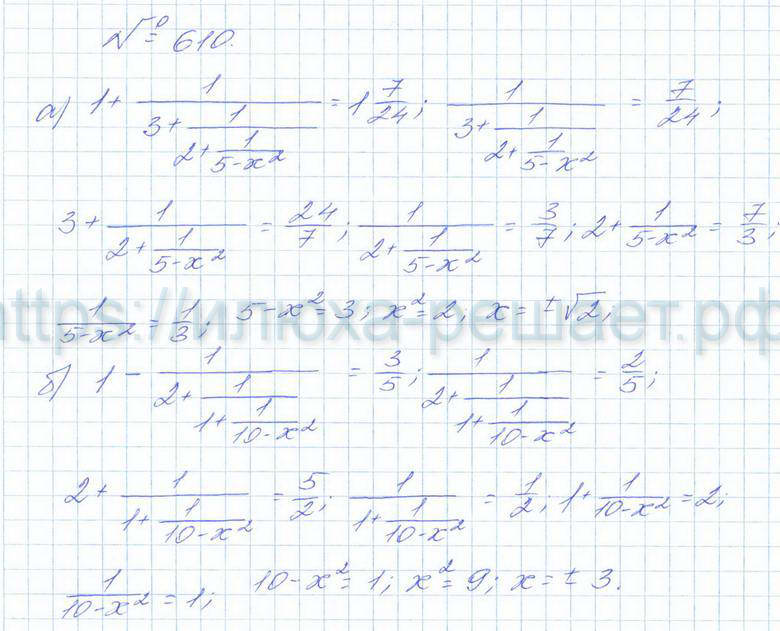 № 610.
а) 1 + 1/(3 + 1/(2 + 1/(5-x²))) = 1 7/24; 1/(3 + 1/(2 + 1/(5-x²))) = 7/24;
3 + 1/(2 + 1/(5-x²)) = 24/7; 1/(2 + 1/(5-x²)) = 3/7; 2 + 1/(5-x²) = 7/3;
1/(5-x²) = 1/3; 5-x² = 3; x² = 2, x = ±√2;
https://илюха-решает.рф
б) 1 - 1/(2 + 1/(1 + 1/(10-x²))) = 3/5; 1/(2 + 1/(1 + 1/(10-x²))) = 2/5;
2 + 1/(1 + 1/(10-x²)) = 5/2; 1/(1 + 1/(10-x²)) = 1/2; 1 + 1/(10-x²) = 2;
1/(10-x²) = 1; 10-x² = 1; x² = 9; x = ± 3.